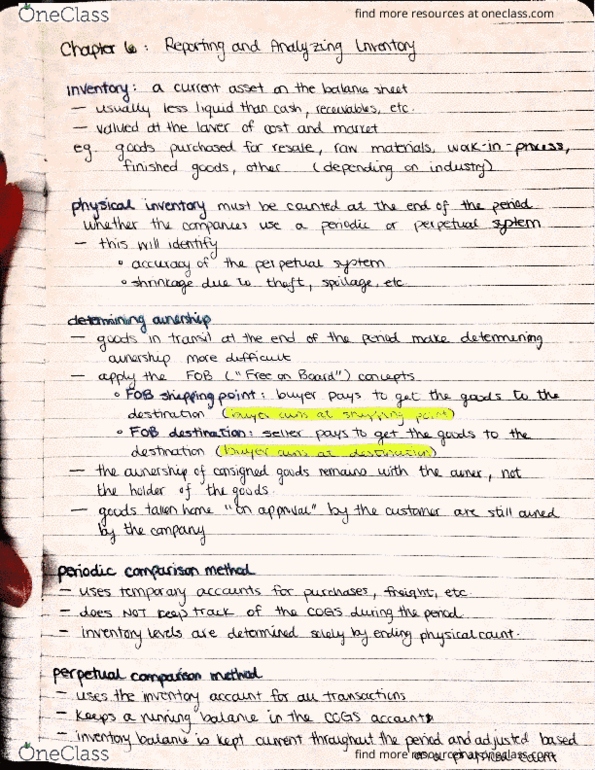 OneClass
find more resources at oneclass.com
Chapter 6: Reporting and Analyzing Inventory
inventory: a current asset on the balance sheet
— usually less liquid than cash, receivables, etc.
— valued at the lower of cost and market
eg. goods purchased for resale, raw materials, work-in-process,
finished goods, other (depending on industry)
physical inventory must be counted at the end of the period
whether the companies use a periodic or perpetual system
— this will identify
° accuracy of the perpetual system
° shrinkage due to theft, spoilage, etc
determining ownership
— goods in transit at the end of the period make determining
ownership more difficult
— apply the FOB ("Free on Board") concepts
° FOB shipping point: buyer pays to get the goods to the
destination (buyer owns at shipping point)
° FOB destination: seller pays to get the goods to the
destination (buyer owns at destination)
— the ownership of consigned goods remains with the owner, not
the holder of the goods.
— goods taken home "on approval" by the customer are still owned
by the company
periodic comparison method
— uses temporary accounts for purchases, freight, etc
— does NOT keep track of the COGS during the period
— inventory levels are determined solely by ending physical count.
perpetual comparison method
— uses the inventory account for all transactions
— keeps a running balance in the COGS accounts
— inventory balance is kept current throughout the period and adjusted based
count
OneClass
find more resources at oneclass.com